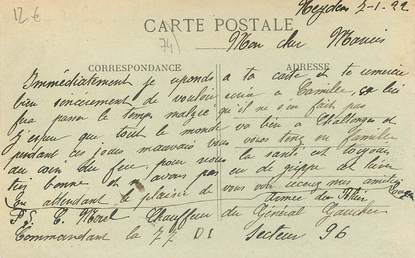 12 €
74)
Heyden 2-1-22
CARTE POSTALE
Mon cher Marius
CORRESPONDANCE
ADRESSE
Immédiatement je reponds a ta carte et te remercie
bien sincèrement de vouloir ecrire a Camille, ca lui
fera passer le temps malgré qu'il ne s'en fait pas
J'espere que tout le monde va bien a Challonges et
pendant ces jours mauvais vous vous tenez en famille
au coin du feu, pour nous la santé est toujours
très bonne et n'avons pas eu de grippe
En attendant le plaisir de vous voir recevez mes amitiés
Armée du Rhin
P.S. E. Morel Chauffeur du Général Gaucher
Commandant la 77 DI Secteur 96